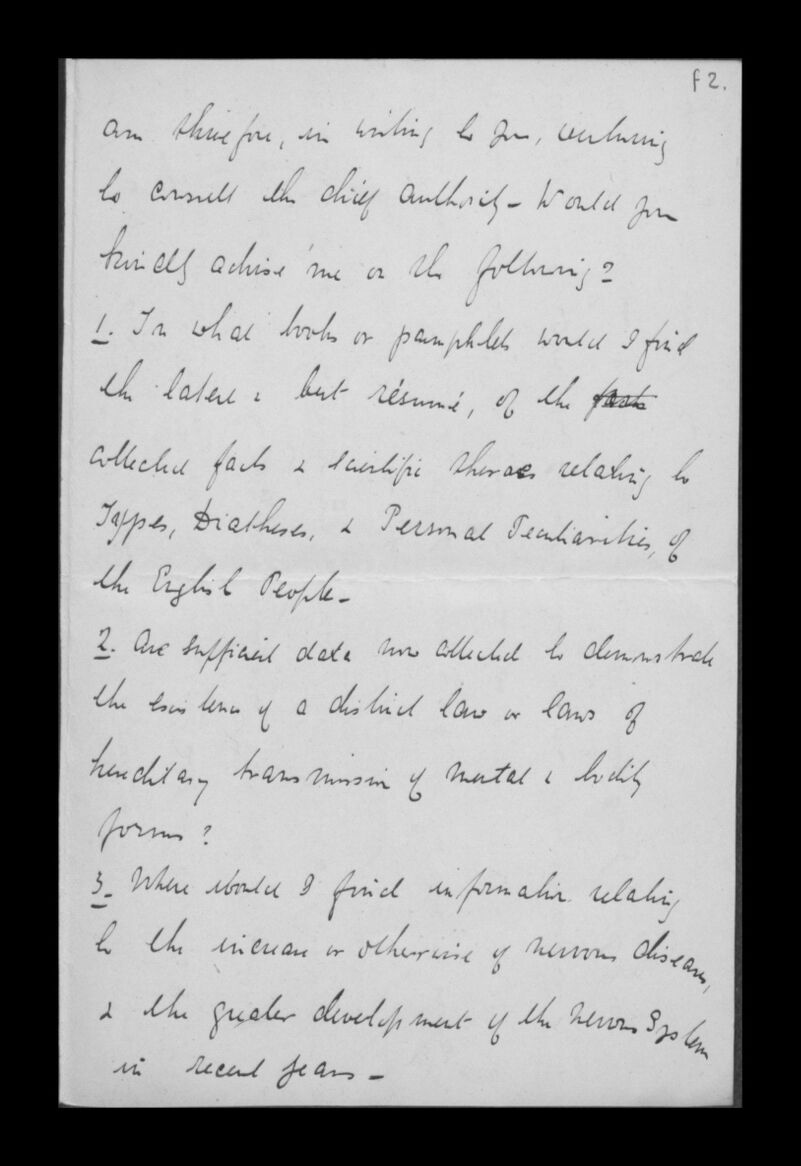 f 2.
am therefore, in writing to you, venturing
to consult the chief authority – Would you
kindly advise me on the following?
1. In what books or pamphlets would I find
the latest & best résumé, of the facts
collected facts & scientific theories relating to
Types, Diatheses, & Personal Peculiarities, of
the English People –
2. Are sufficient data now collected to demonstrate
the existence of a distinct law or laws of
hereditary transmission of mental & bodily
forms?
3. Where would I find information relating
to the increase or otherwise of nervous diseases,
& the greater development of the nervous System
in recent years –